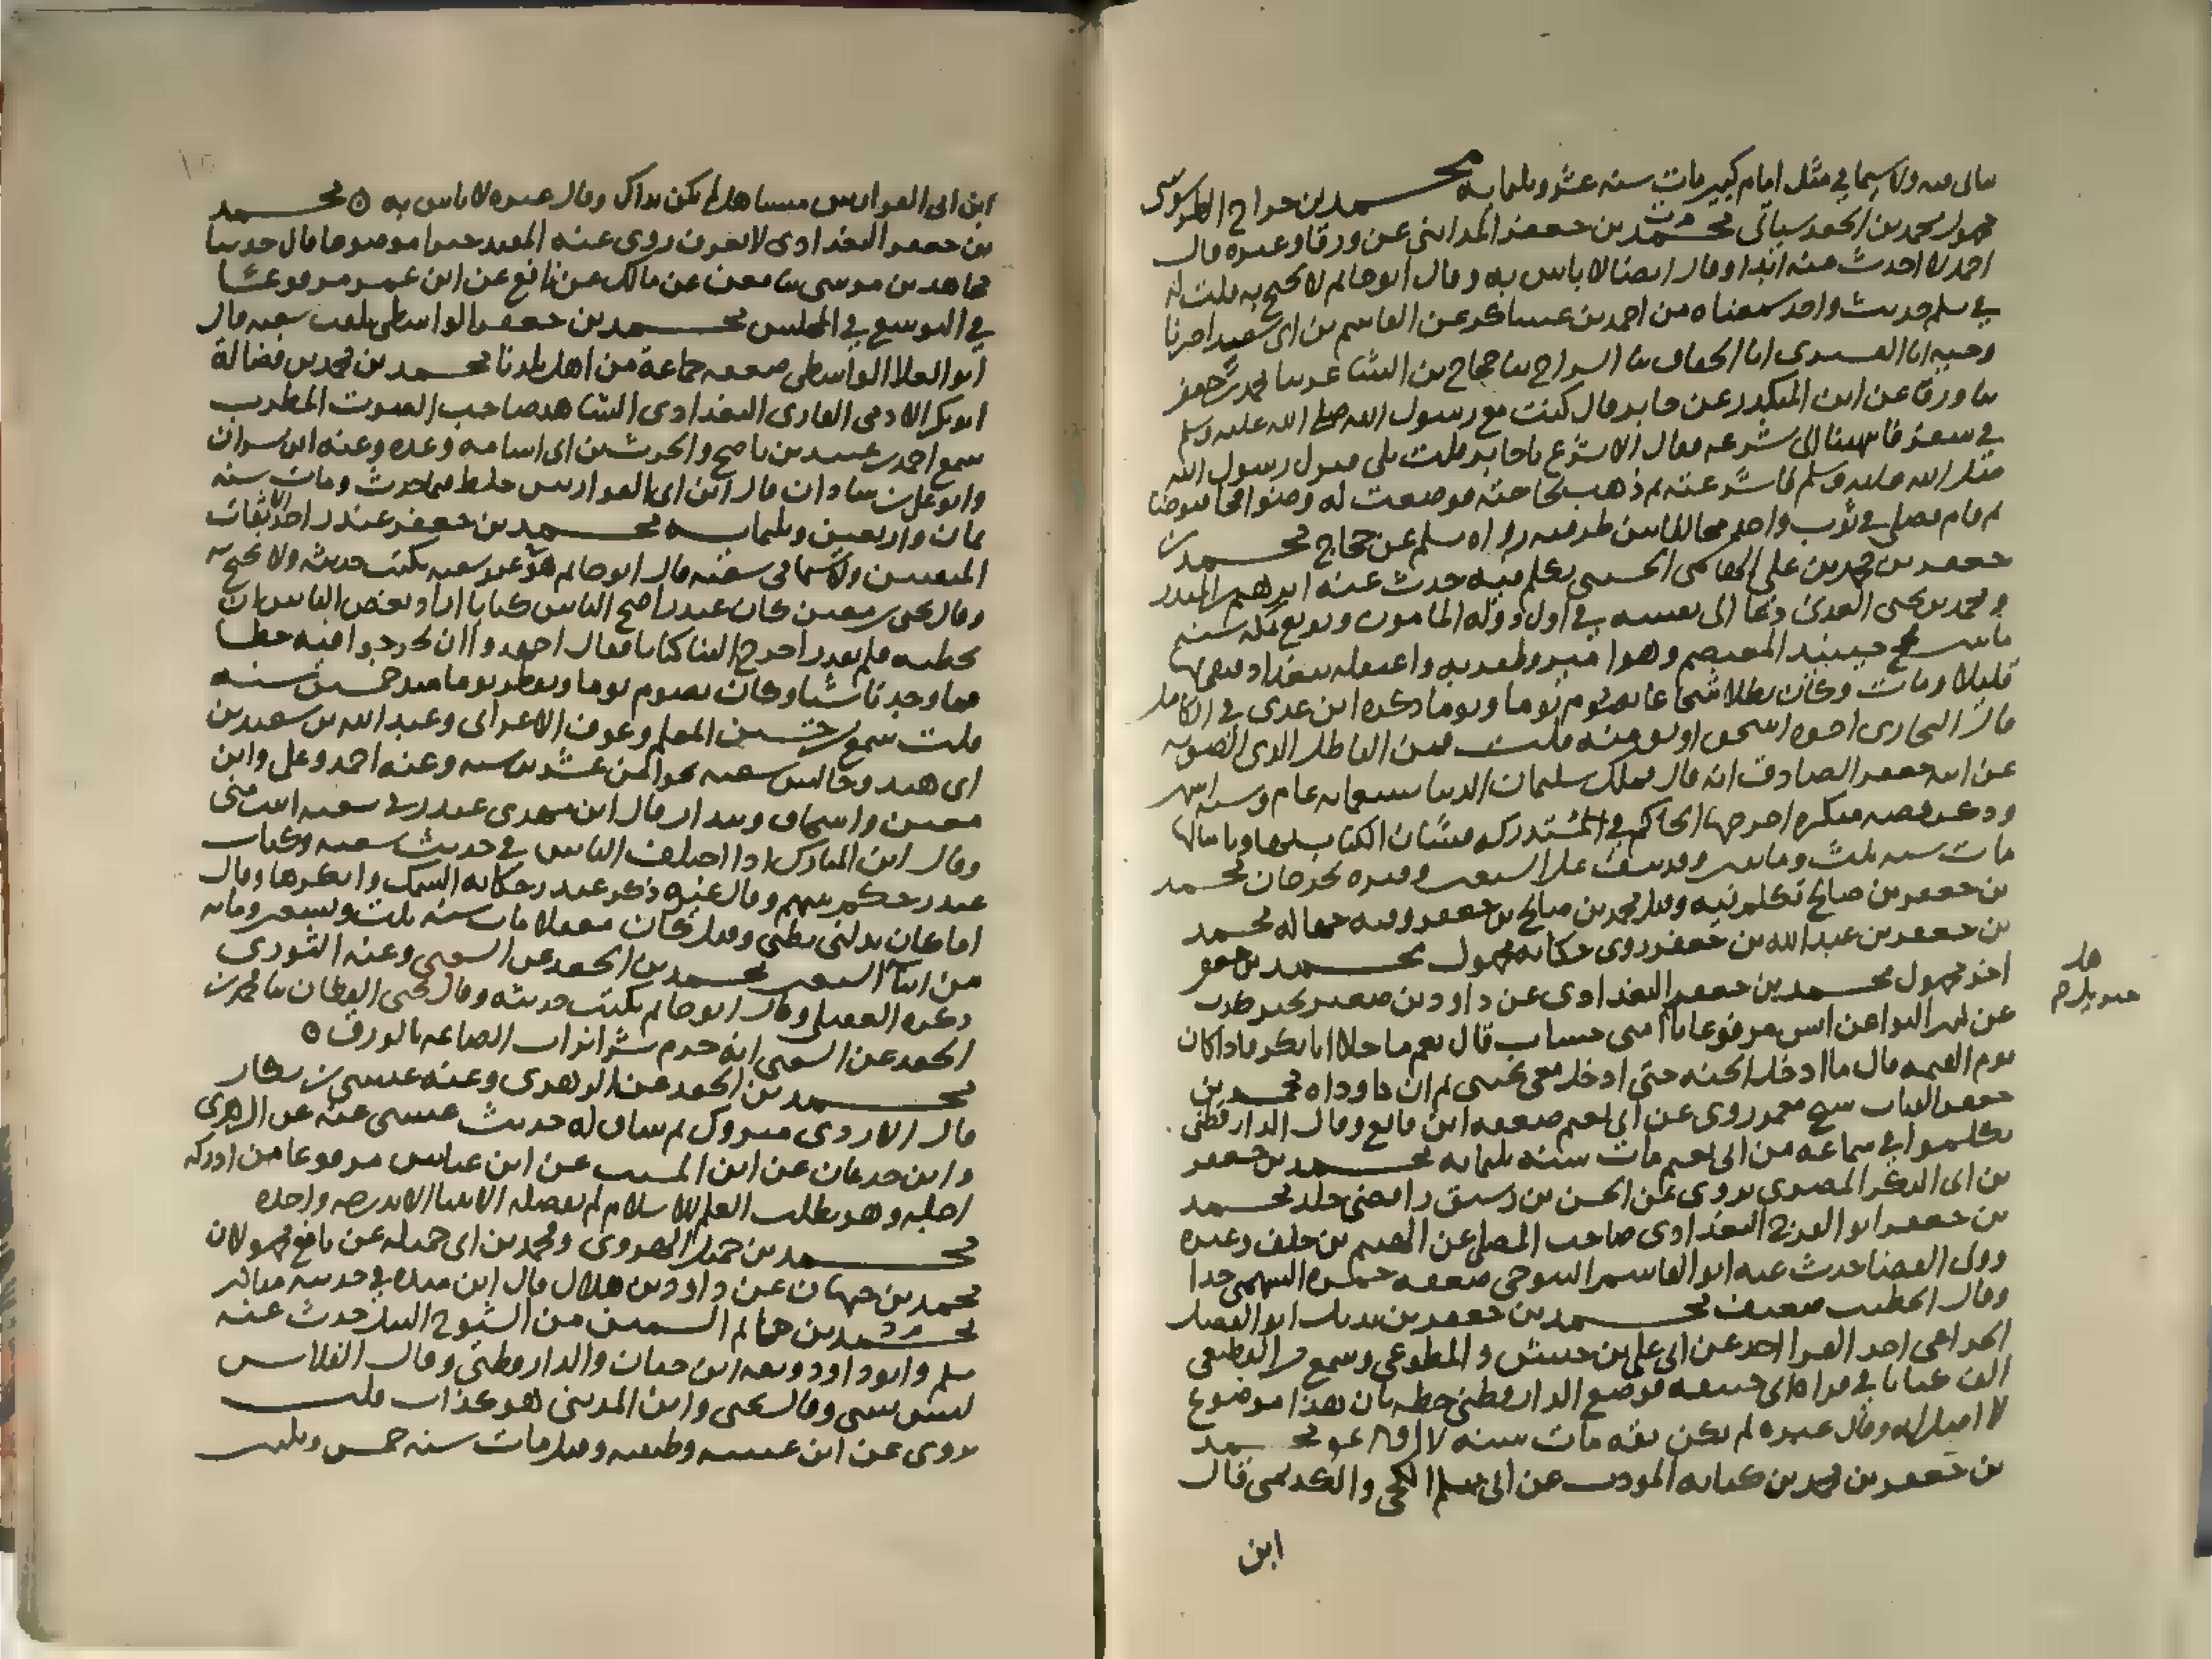 ولا سيما في مثل امام كبير مات سنه عشر وثلثمايه محمد بن
مجهول محمد بن الجعد سياتي محمد بن جعفر المدايني عن ورقا وغيره قال
احمد لا احدث عنه ابدا وقال ايضا لا باس به وقال ابو حاتم لا يحتج به قلت له
في مسلم حديث واحد سمعناه من احمد بن عساكر عن القاسم بن ابي سعيد اخبرنا
وجيه انا انا الخفاف ثنا السراج ثنا حجاج بن الشاعر ثنا محمد بن جعفر
ثنا ورقا عن ابن المنكدر عن جابر قال كنت مع رسول الله صلى الله عليه وسلم
في سفر فانتهينا الى مشرعه فقال الا تشرع يا جابر قلت بلى فنزل رسول الله
صلى الله عليه وسلم فاشرعت ثم ذهب لحاجته فوضعت له وضوا فجا فتوضا
ثم قام فصلى في ثوب واحد مخالفا بين طرفيه رواه مسلم عن حجاج محمد بن
جعفر بن محمد بن علي الهاشمي الحسيني تكلم فيه حدث عنه ابرهيم بن المنذر
ومحمد بن يحيى العدني دعا الى نفسه في اول دوله المامون وبويع بمكه سنه
مايتين فحج حينيذ المعتصم وهو امير وظفر به واعتقله ببغداد فبقي بها
قليلا ومات وكان بطلا شجاعا يصوم يوما ويوما ذكره ابن عدي في الكامل
قال البخاري اخوه اسحق اوثق منه قلت فمن الباطل الذي
عن ابيه جعفر الصادق انه قال ملك سليمان الدنيا سبعمايه عام وسته اشهر
وذكر قصه منكره اخرجها الحاكم في المستدرك فشان الكتاب بها وبامثالها
مات سنه ثلث ومايتين وقد نيف على السبعين وقبره بجرجان محمد
بن جعفر بن صالح تكلم فيه وقيل محمد بن صالح بن جعفر وفيه جهاله محمد
بن جعفر بن عبد الله بن جعفر روى حكايه مجهول محمد بن جعفر
اخر مجهول محمد بن جعفر البغدادي عن داود بن صغير بخبر كذب
عن انس مرفوعا يا امتي حساب قال نعم ما خلا ابا بكر فاذا كان
يوم القيمه قال ما ادخل الجنه حتى ادخل معي محمد بن
جعفر القتات شيخ معمر روى عن ابي نعيم ضعفه ابن قانع وقال الدارقطني
تكلموا في سماعه من ابي نعيم مات سنه ثلثمايه محمد بن جعفر
بن ابي الذكر المصري يروي عن الحسن بن رشيق رافضي جلد محمد
بن جعفر ابو الفرج البغدادي صاحب المصلى عن الهيثم بن خلف وغيره
وولي القضا حدث عنه ابو القاسم التنوخي ضعفه حمزه السهمي جدا
وقال الخطيب ضعيف محمد بن جعفر بن بديل ابو الفضل
الخزاعي احد القرا اخذ عن ابي علي بن حبش والمطوعي وسمع من القطيعي
الف كتابا في قراه ابي حنيفه فوضع الدارقطني خطه بان هذا موضوع
لا اصل له وقال غيره لم يكن ثقه مات سنه محمد
بن جعفر بن محمد بن كنانه المودب عن ابي مسلم الكجي والكديمي قال
ابن
ابن ابي الفوارس متساهلا لم يكن بذاك وقال غيره لا باس به محمد
بن جعفر البغدادي لا يعرف روى عنه المفيد خبرا موضوعا قال حدثنا
مجاهد بن موسى ثنا معن عن مالك عن نافع عن ابن عمر مرفوعا
في التوسع في المجلس محمد بن جعفر الواسطي يلقب شعبه قال
ابو العلا الواسطي ضعفه جماعة من اهل بلدنا محمد بن محمد بن فضالة
ابو بكر الادمي القاري البغدادي الشاهد صاحب الصوت المطرب
سمع احمد بن عبيد بن ناصح والحرث بن ابي اسامه وعده وعنه ابن بشران
وابو علي بن شاذان قال ابن ابي الفوارس خلط فيما حدث ومات سنه
ثمان واربعين وثلثمايه محمد بن جعفر غندر احد الاثبات
المتقنين ولا سيما في شعبه قال ابو حاتم هو عن غير شعبه يكتب حديثه ولا يحتج به
وقال يحيى بن معين كان غندر اصح الناس كتابا اراد بعض الناس ان
يخطيه فلم يقدر اخرج الينا كتابا فقال اجهدوا ان تخرجوا فيه خطا
فما وجدنا شيا وكان يصوم يوما ويفطر يوما منذ خمسين سنه
قلت سمع حسين المعلم وعوف الاعرابي وعبد الله بن سعيد بن
ابي هند وجالس شعبه نحوا من عشرين سنه وعنه احمد وعلي وابن
معين واسحاق وبندار قال ابن مهدي غندر في شعبه اثبت مني
وقال ابن المبارك اذا اختلف الناس في حديث شعبه فكتاب
غندر حكم بينهم وقال غيره ذكر غندر حكايه السمك وانكرها وقال
اما كان يدلني بطني وقيل كان مغفلا مات سنه ثلث وتسعين ومايه
من ابنا السبعين محمد بن الجعد عن الشعبي وعنه الثوري
ذكره العقيلي وقال ابو حاتم يكتب حديثه وقال يحيى القطان ثنا محمد بن
الجعد عن الشعبي انه حرم شرا تراب الصاغه بالورق
محمد بن الجعد عن الزهري وعنه عيسى بن بكار
قال الازدي متروك ثم ساق له حديث عيسى عنه عن الزهري
وابن جدعان عن ابن المسيب عن ابن عباس مرفوعا من ادركه
اجله وهو يطلب العلم للاسلام لم يفضله الانبيا الا بدرجه واحده
محمد بن حميد الهروي ومحمد بن ابي جميله عن نافع مجهولان
محمد بن جهان عن داود بن هلال قال ابن منده في حديثه مناكير
محمد بن حاتم السمين من الشيوخ النبل حدث عنه
مسلم وابو داود وثقه ابن حبان والدارقطني وقال الفلاس
ليس بشي وقال يحيى وابن المديني هو كذاب قلت
يروي عن ابن عيينه وطبقته وقيل مات سنه خمس وثلثين